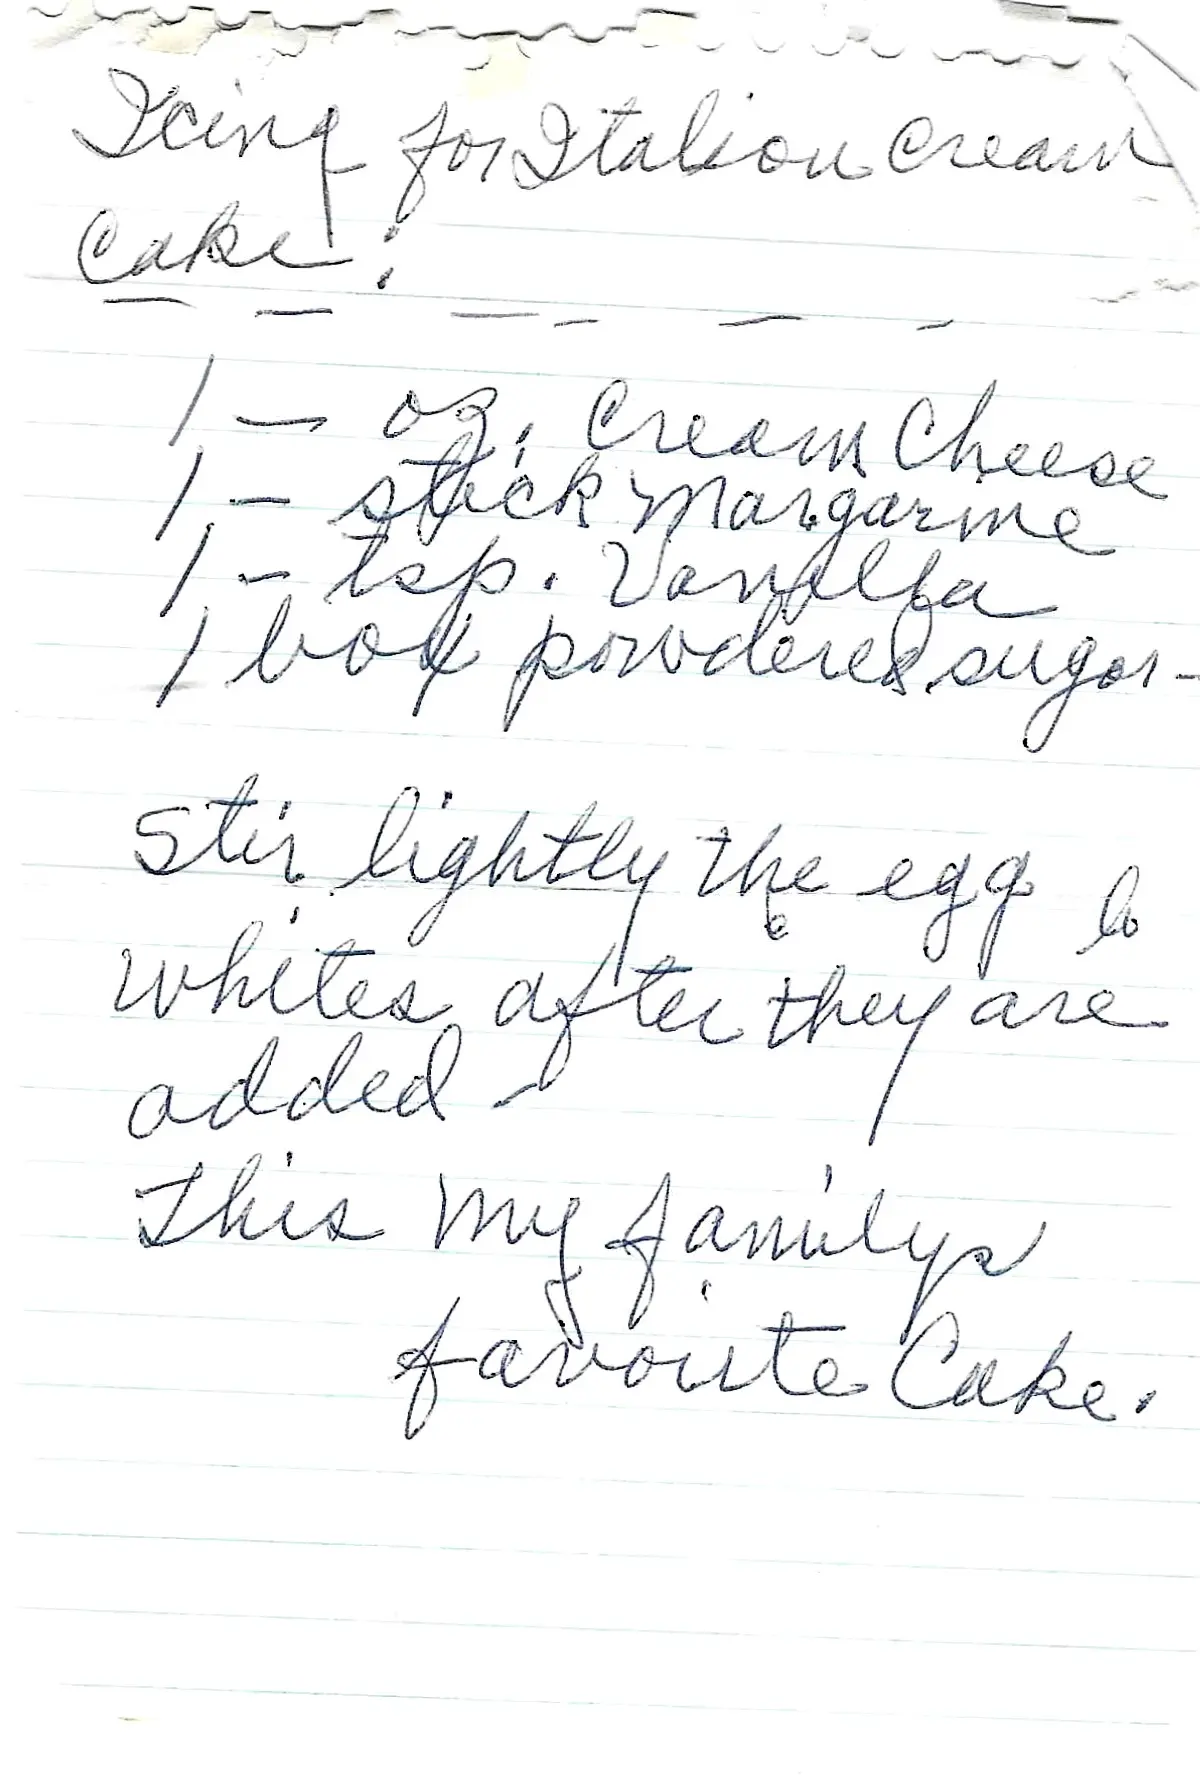 Icing for Italian Cream
Cake:
1 - oz. Cream Cheese
1 - stick Margarine
1 - tsp. Vanilla
1 box powdered sugar -
Stir lightly the egg
whites after they are
added -
This my familys
favorite Cake.